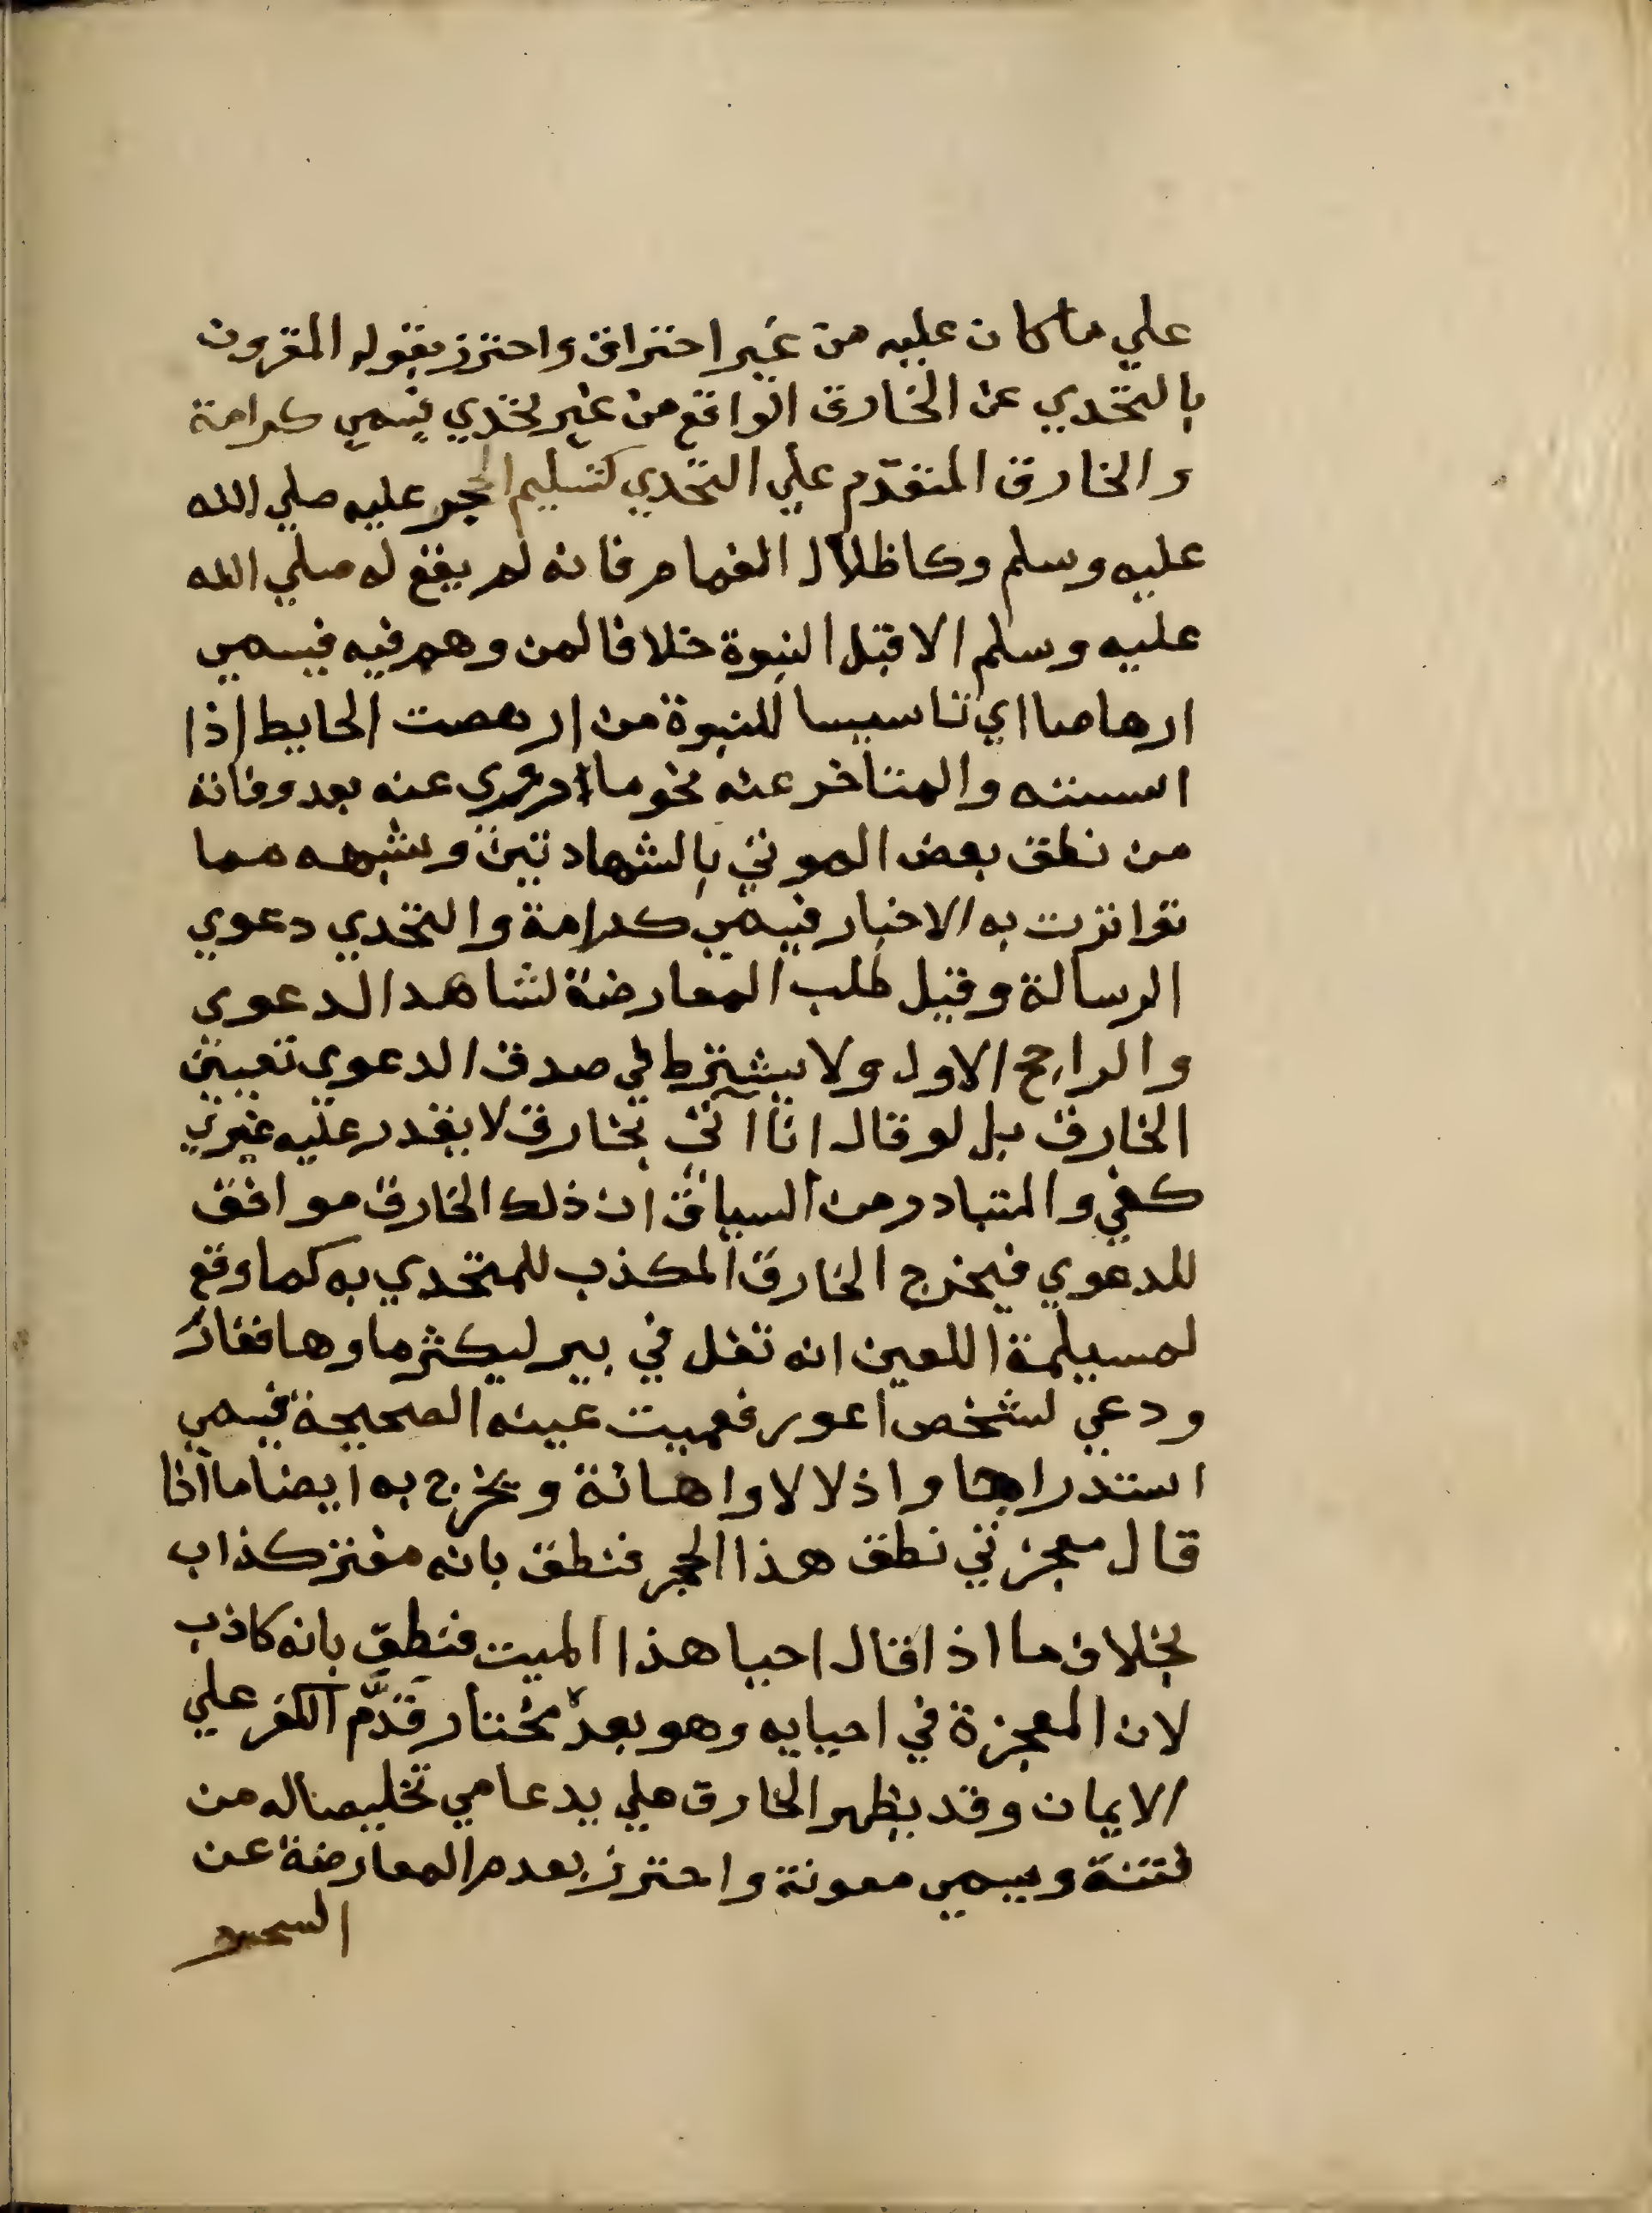 علي ما كان عليه من غير احتراق واحترز بقوله المقرون
بالتحدي عن الخارق الواقع من غير تحدي يسمي كرامة
والخارق المتقدّم علي التحدي كتسليم الحجر عليه صلي الله
عليه وسلم وكاظلال الغمام فانه لم يقع له صلي الله
عليه وسلم الا قبل النبوة خلافا لمن وهم فيه فيسمي
ارهاصا اي تاسيسا للنبوة من ارهصت الحايط اذا
اسسته والمتاخر عنه نحو ما روي عنه بعد وفاته
من نطق بعض الموتي بالشهادتين وشبهه مما
تواترت به الاخبار فيسمي كرامة والتحدي دعوي
الرسالة وقيل طلب المعارضة لشاهد الدعوي
والراجح الاول ولا يشترط في صدق الدعوي تعيين
الخارق بل لو قال انا اتي بخارق لا يقدر عليه غيري
كفي والمتبادر من السياق ان ذلك الخارق موافق
للدعوي فيخرج الخارق المكذب للمتحدي به كما وقع
لمسيلمة اللعين انه تفل في بير ليكثر ماوها فغار
ودعي لشخص اعور فعميت عينه الصحيحة فيسمي
استدراجا واذلالا واهانة ويخرج به ايضا ما اذا
قال معجزتي نطق هذا الحجر فنطق بانه مفتر كذاب
بخلاف ما اذا قال احيا هذا الميت فنطق بانه كاذب
لان المعجزة في احيايه وهو بعد مختار قدَّم الكفر علي
الايمان وقد يظهر الخارق علي يد عامي تخليصا له من
فتنة ويسمي معونة واحترز بعدم المعارضة عن
السحر